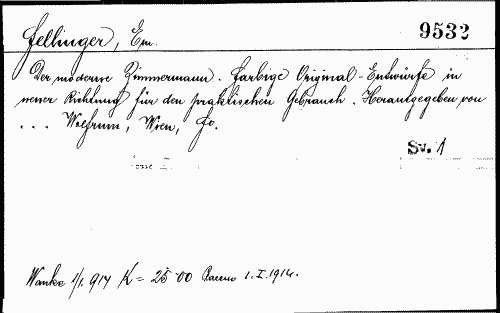 Fellinger, Em.
9532
Der moderne Zimmermann. Farbige Original-Entwürfe in
neuer Richtung für den praktischen Gebrauch. Herausgegeben von
... Wolfrum, Wien, Fo.
Sv. 1
Wanke 1/1. 914 K = 25 00 1.I.1914.